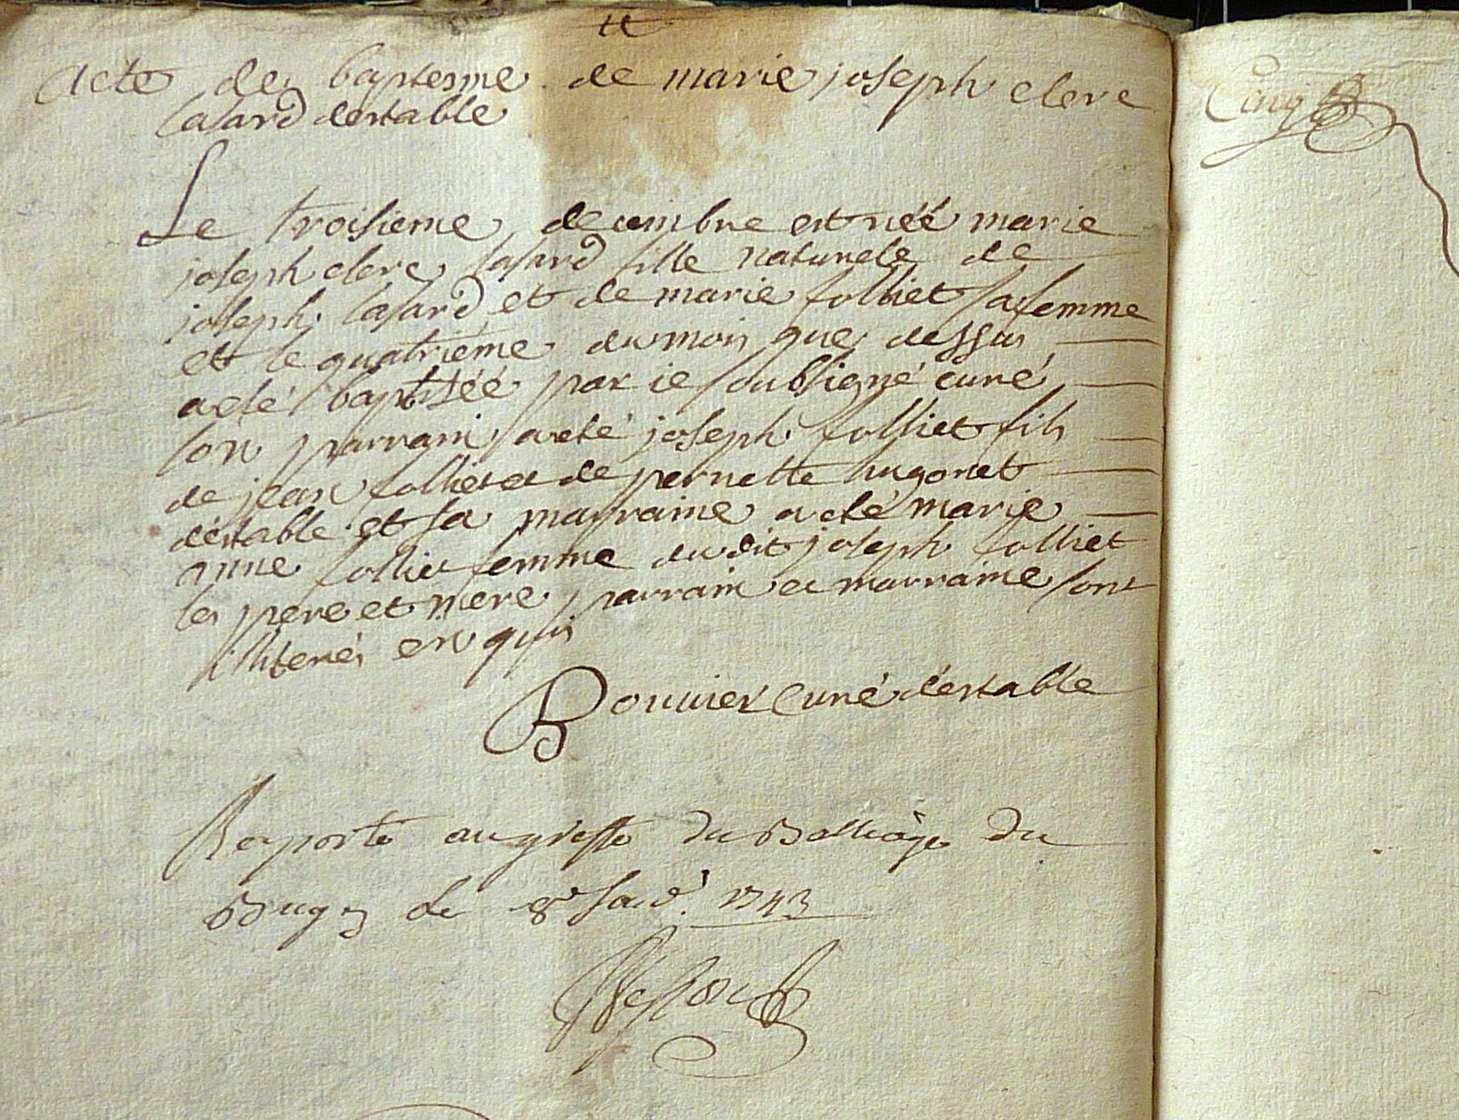 Acte de baptesme de marie joseph clere
Casard destable
Le troisieme decembre est néé marie
joseph clere Casard fille naturele de
joseph Casard et de marie folliet sa femme
et le quatrieme du mois que dessus
a eté baptiséé par ie soubsigné curé
son parrain a eté joseph folliet fils
de jean folliet et de pernette hugonet
destable et sa marraine a eté marie
anne folliet femme du dit joseph folliet
les pere et mere parrain et marraine sont
illiterés enquis
Bouvier Curé destable
Raporté au greffe du Balliage du
Bugey le 8e 1743
Cinq